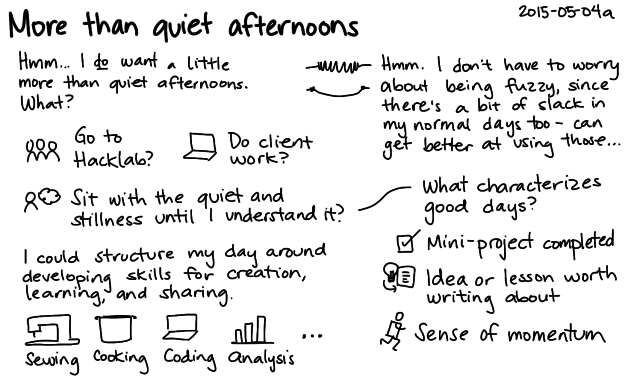 More than quiet afternoons
2015-05-04a
Hmm... I do want a little
more than quiet afternoons.
What?
Hmm. I don't have to worry
about being fuzzy, since
there's a bit of slack in
my normal days too - can
get better at using those...
Go to
Hacklab?
Do client
work?
Sit with the quiet and
stillness until I understand it?
What characterizes
good days?
Mini-project completed
Idea or lesson worth
writing about
Sense of momentum
I could structure my day around
developing skills for creation,
learning, and sharing.
Sewing Cooking Coding Analysis ...